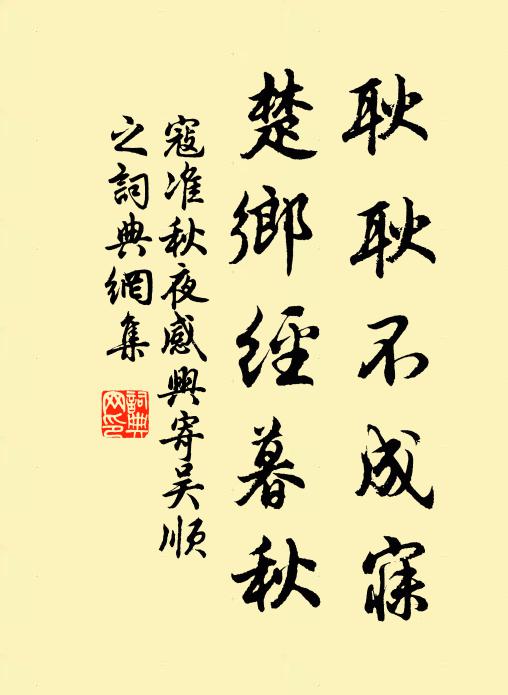 耿耿不成寐
楚鄉經暮秋
寇准秋夜感興寄吴順
之詞典網集
詞典網印